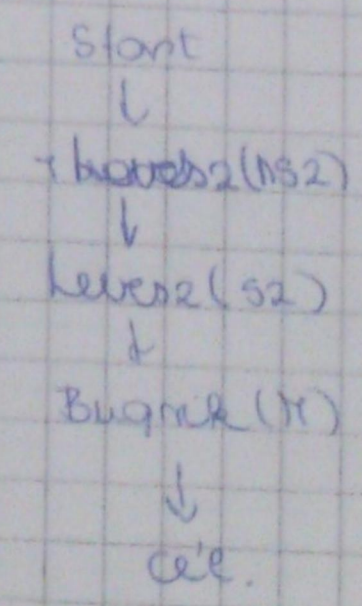 Start
↓
Leves2(NS2)
↓
Leves2(S2)
↓
Bugrik(M)
↓
Cél.